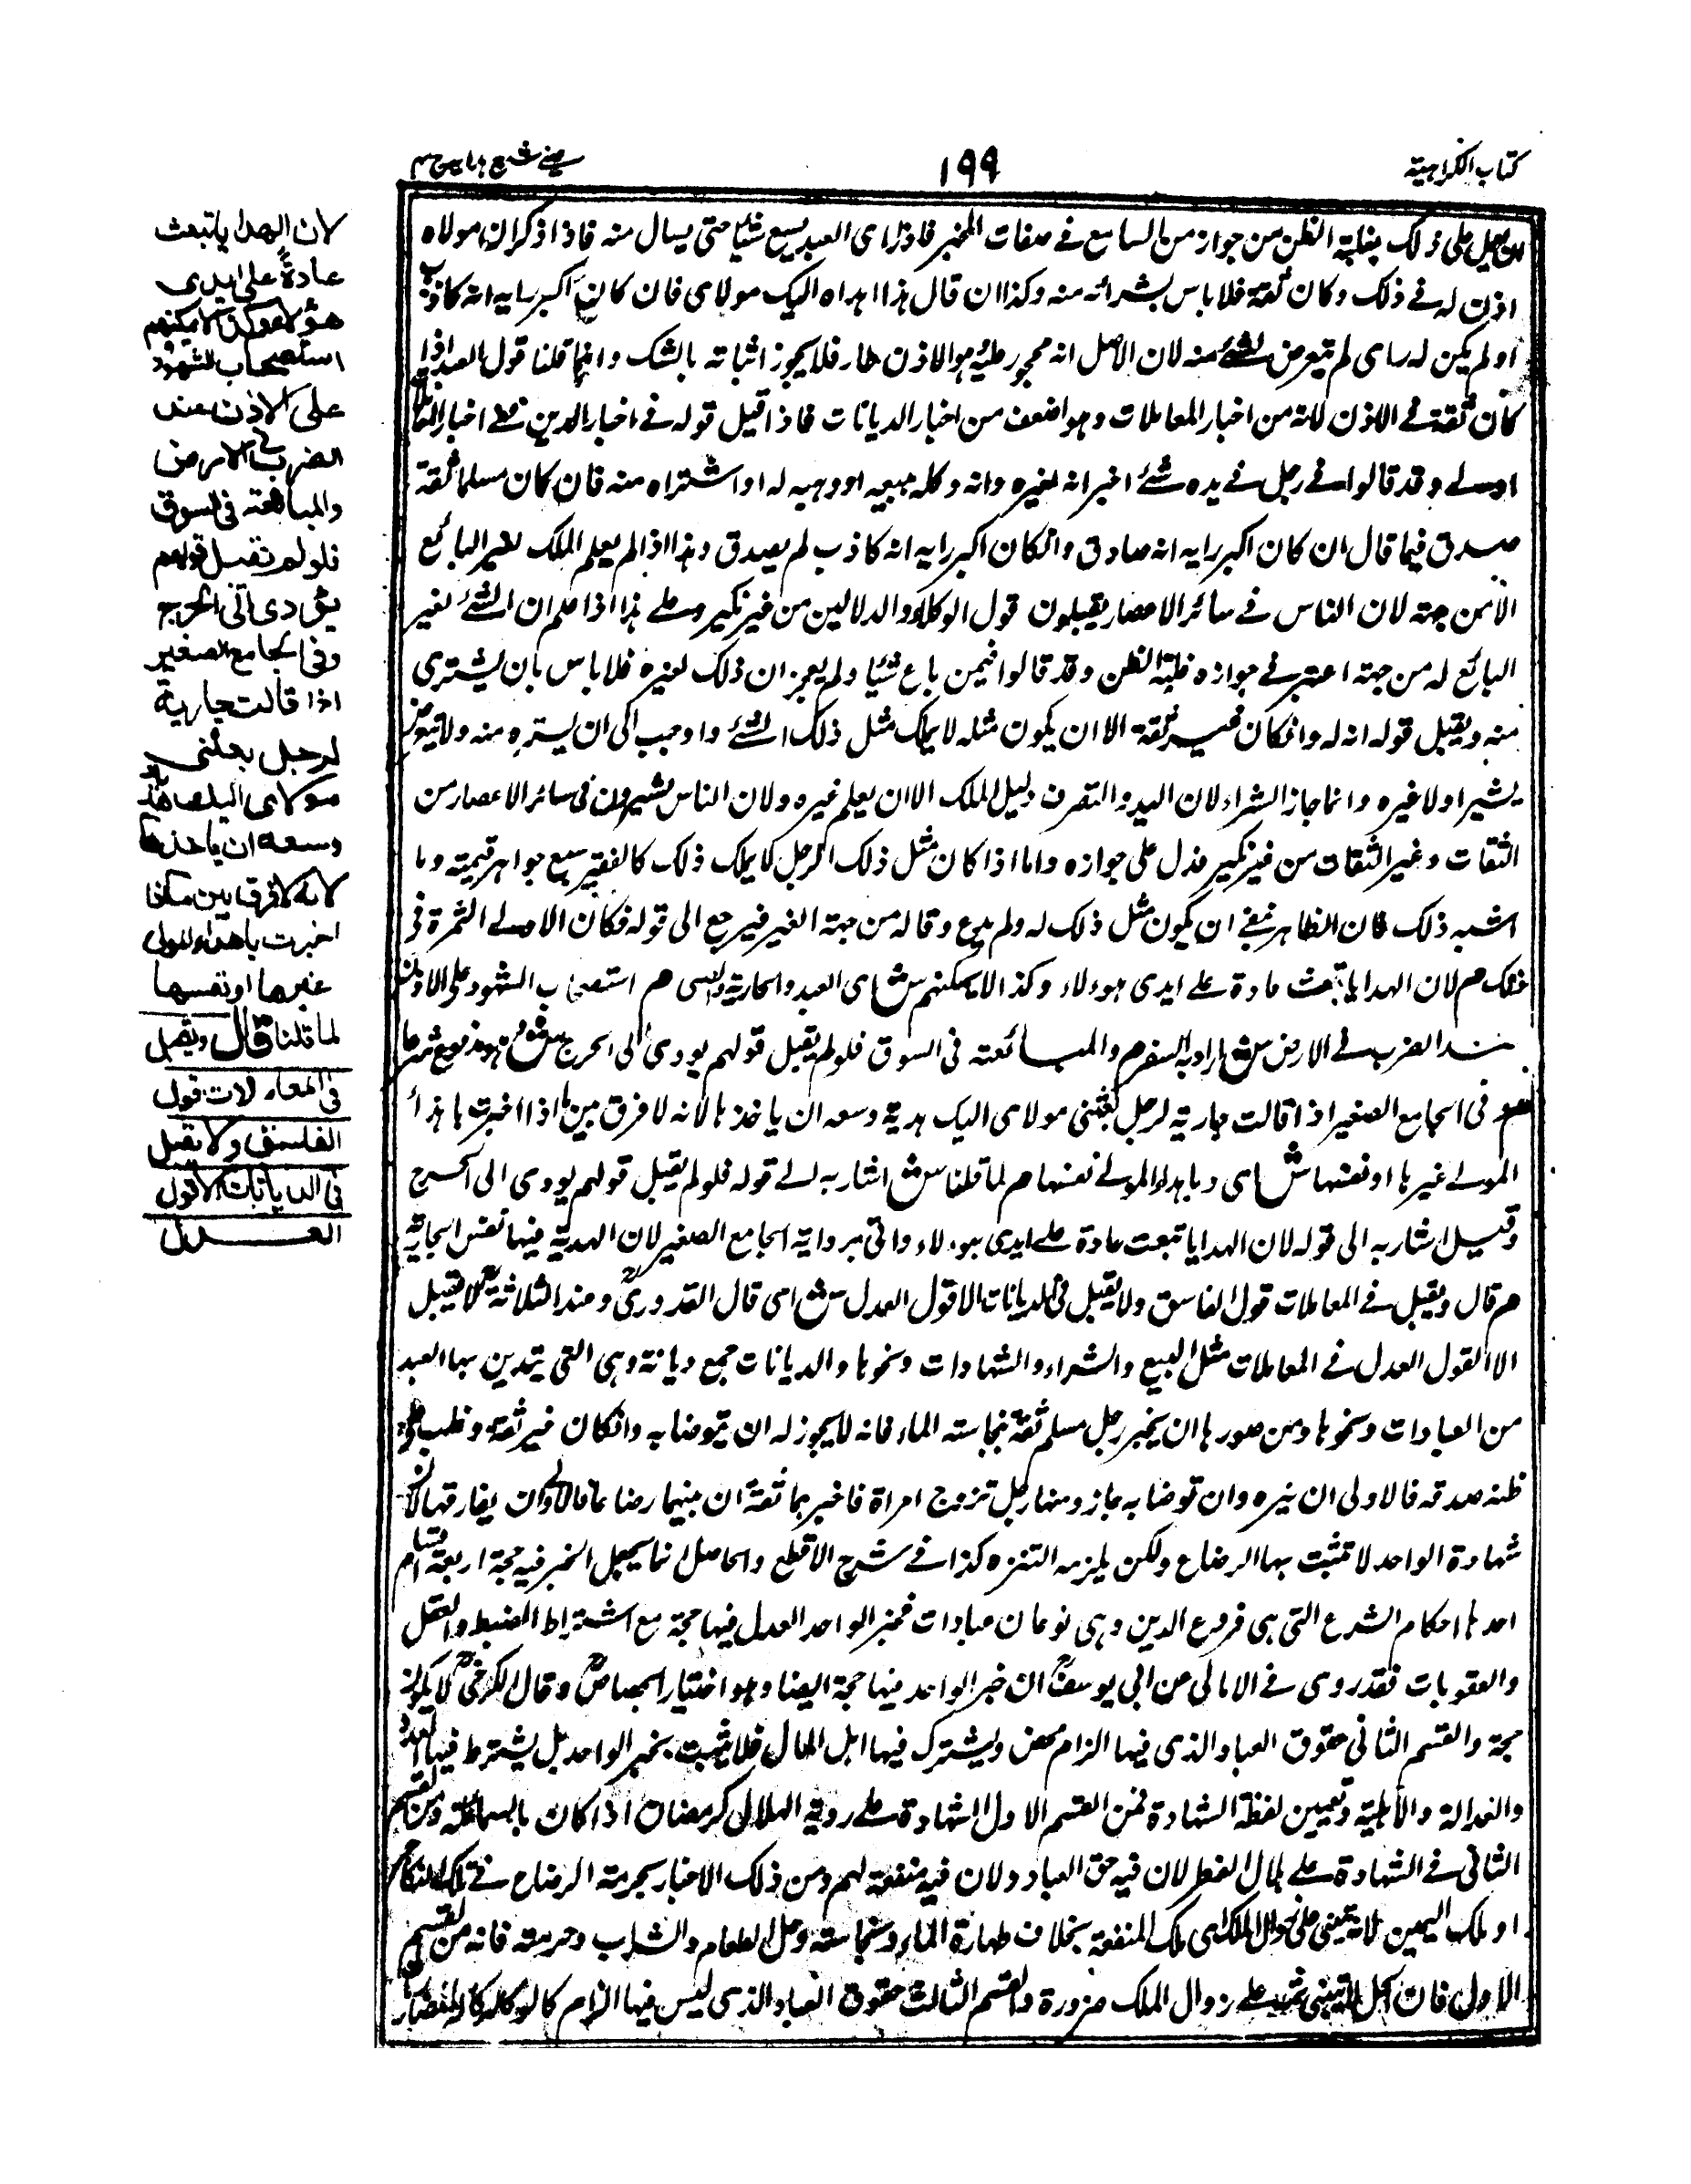 كتاب الكراهية
١٩٩
عيني شرح هداية ج ٤
يعمل على ذلك بغلبة الظن من جواز من السامع في صفات المخبر فاذا راى العبد يبيع شيئا حتى يسال منه فاذا ذكر ان مولاه
اذن له في ذلك وكان ثقة فلا باس بشرائه منه وكذا ان قال هذا اهداه اليك مولاى فان كان اكبر رايه انه كاذب
او لم يكن له راى لم يتعرض لشئ منه لان الاصل انه محجور عليه والاذن طار فلا يجوز اثباته بالشك وانما قلنا قول العبد اذا
كان ثقة في الاذن لانه من اخبار المعاملات وهو اضعف من اخبار الديانات فاذا قبل قوله في اخبار الدين ففي اخبار المعاملات
اولى وقد قالوا في رجل في يده شئ اخبر انه لغيره وانه وكله ببيعه او وهبه له او اشتراه منه فان كان مسلما ثقة
صدق فيما قال ان كان اكبر رايه انه صادق وان كان اكبر رايه انه كاذب لم يصدق وهذا اذا لم يعلم الملك لغير البائع
الا من جهته لان الناس في سائر الامصار يقبلون قول الوكلاء والدلالين من غير نكير وعلى هذا اذا علم ان الشئ لغير
البائع له من جهته اعتبر في جوازه غلبة الظن وقد قالوا فيمن باع شيئا ولم يعجز ان ذلك لغيره فلا باس بان يشترى
منه ويقبل قوله انه له وان كان غير ثقة الا ان يكون مثله لا يملك مثل ذلك الشئ واوجب الى ان يستره منه ولا يتعرض
يشير اولا غيره وانما جاز الشراء لان اليد والتصرف دليل الملك الا ان يعلم غيره ولان الناس يشترون فى سائر الاعصار من
الثقات وغير الثقات من غير نكير فدل على جوازه واما اذا كان مثل ذلك الرجل لا يملك ذلك كالفقير يبيع جواهر قيمته وما
اشبه ذلك فان الظاهر ينفى ان يكون مثل ذلك له ولم يدع وقاله من جهة الغير فيرجع الى قوله فكان الاولى التنزه فى
ذلك م لان الهدايا تبعث عادة على ايدى هؤلاء وكذا لا يمكنهم ش اى العبد والجارية والصبى م استصحاب الشهود على الاذن
عند الضرب في الارض ش اراد به السفر م والمبايعة فى السوق فلو لم يقبل قولهم يؤدى الى الحرج ش وهو مدفوع شرعا
م وفى الجامع الصغير اذا قالت جارية لرجل بعثنى مولاى اليك هدية وسعه ان ياخذها لانه لا فرق بين ما اذا اخبرت باهداء
المولى غيرها او نفسها ش اى وباهداء المولى نفسها م لما قلنا ش اشار به الى قوله فلو لم يقبل قولهم يؤدى الى الحرج
وقيل اشار به الى قوله لان الهدايا تبعث عادة على ايدى هؤلاء واتى برواية الجامع الصغير لان الهدية فيها نفس الجارية
م قال ويقبل في المعاملات قول الفاسق ولا يقبل فى الديانات الا قول العدل ش اى قال القدورى وعند الثلاثة لا يقبل
الا القول العدل في المعاملات مثل البيع والشراء والشهادات ونحوها والديانات جمع ديانة وهى التى يتدين بها العبد
من العبادات ونحوها ومن صورها ان يخبر رجل مسلم ثقة بنجاسة الماء فانه لا يجوز له ان يتوضا به وان كان غير ثقة وغلب على
ظنه صدقه فالاولى ان يتنزه وان توضا به جاز ومنها رجل تزوج امراة فاخبر بها ثقة ان بينهما رضاعا فالاولى ان يفارقها لان
شهادة الواحد لا تثبت بها الرضاع ولكن يلزمه التنزه كذا في شرح الاقطع والحاصل انما يجعل الخبر فيه حجة اربعة اقسام
احدها احكام الشرع التى هى فروع الدين وهى نوعان عبادات فخبر الواحد العدل فيها حجة مع اشتراط الضبط والعقل
والعقوبات فقد روى في الامالى عن ابى يوسف ان خبر الواحد فيها حجة ايضا وهو اختيار الجصاص وقال الكرخى لا يكون
حجة والقسم الثانى حقوق العباد الذى فيها الزام محض ويشترك فيها اهل الملل فلا يثبت بخبر الواحد بل يشترط فيها العدد
والعدالة والاهلية وتعيين لفظة الشهادة فمن القسم الاول الشهادة على رؤية الهلال كرمضان اذا كان بالسماء علة ومن القسم
الثانى في الشهادة على هلال الفطر لان فيه حق العباد ولان فيه منفعة لهم ومن ذلك الاخبار بحرمة الرضاع في ملك النكاح
او ملك اليمين لانه يبتنى على زوال الملك اى ملك المنفعة بخلاف طهارة الماء ونجاسته وحل الطعام والشراب وحرمته فانه من القسم
الاول فان الحل لا يبتنى على زوال الملك ضرورة والقسم الثالث حقوق العباد الذى ليس فيها الزام كالوكالة والمضاربة
لان الهدايا تبعث
عادة على ايدى
هؤلاء وكذا لا يمكنهم
استصحاب الشهود
على الاذن عند
الضرب في الارض
والمبايعة فى السوق
فلو لم يقبل قولهم
يؤدى الى الحرج
وفى الجامع الصغير
اذا قالت جارية
لرجل بعثنى
مولاى اليك هدية
وسعه ان ياخذها
لانه لا فرق بين ما اذا
اخبرت باهداء المولى
غيرها او نفسها
لما قلنا قال ويقبل
فى المعاملات قول
الفاسق ولا يقبل
فى الديانات الا قول
العدل